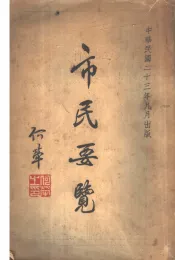 中華民國二十三年九月出版
市民要覽
何犖